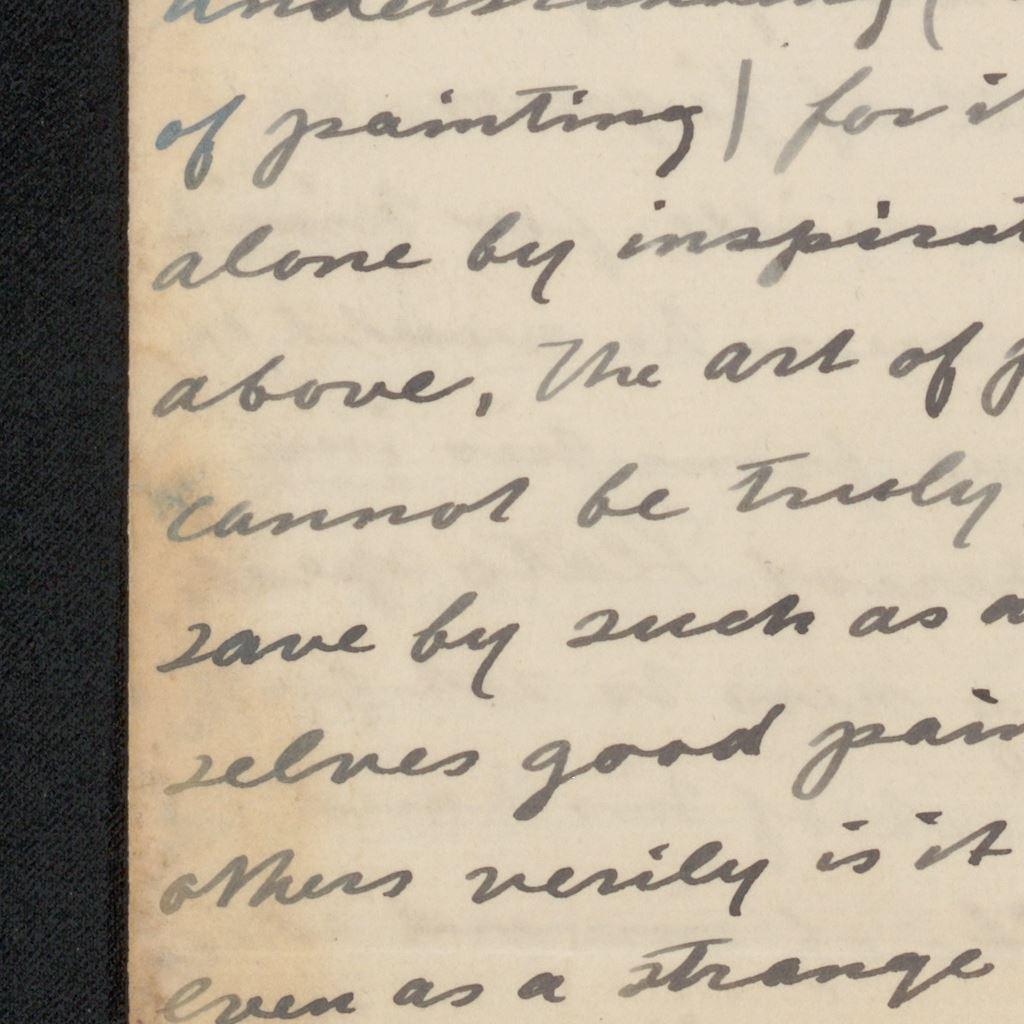 understanding (
of painting) for it
alone by inspirat
above, The art of p
cannot be truly
save by such as a
selves good pain
others verily is it
even as a strange